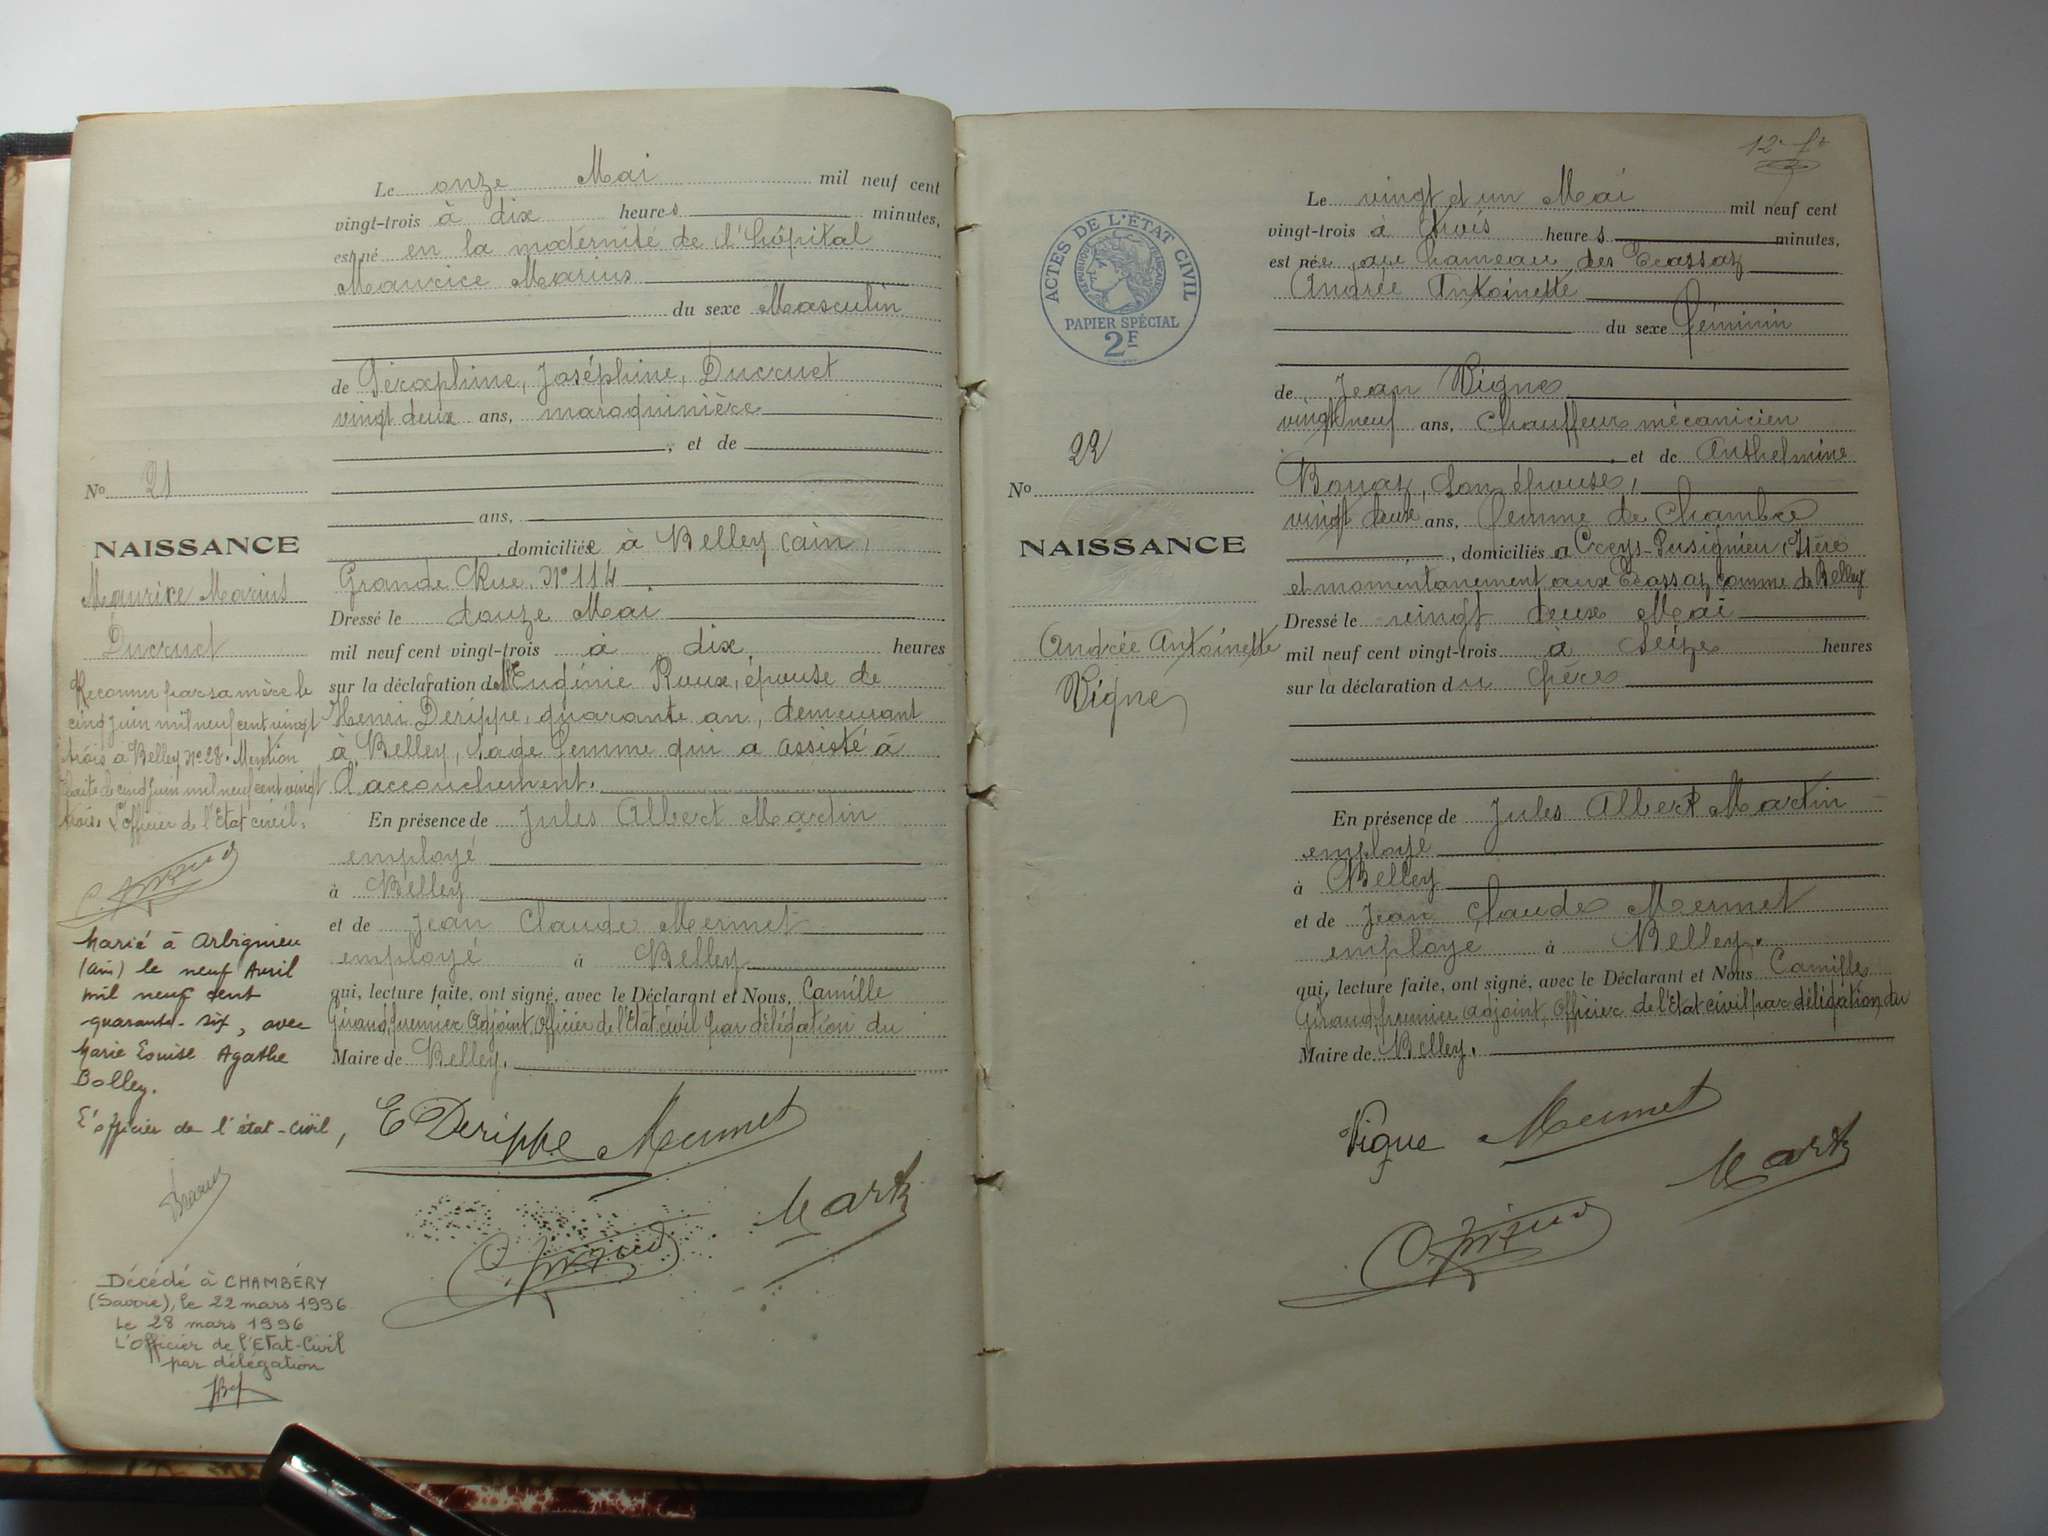 Le onze Mai mil neuf cent
vingt-trois à dix heures minutes,
est né en la maternité de l'hôpital
Maurice Marius
du sexe Masculin
de Séraphine, Joséphine, Ducruet
vingt deux ans, maroquinière
, et de
ans,
domiciliée à Belley (Ain)
Grande Rue, N° 114
Dressé le douze Mai
mil neuf cent vingt-trois à dix heures
sur la déclaration de Eugénie Roux, épouse de
Henri Derippe, quarante an, demeurant
à Belley, sage femme qui a assisté à
l'accouchement.
En présence de Jules Albert Martin
employé
à Belley
et de Jean Claude Mermet
employé à Belley
qui, lecture faite, ont signé, avec le Déclarant et Nous, Camille
Giraud, premier Adjoint, Officier de l'Etat civil par délégation du
Maire de Belley.
E Derippe Mermet
Martin
C. Giraud
No 21
NAISSANCE
Maurice Marius
Ducruet
Reconnu par sa mère le
cinq juin mil neuf cent vingt
trois à Belley N° 28. Mention
faite le cinq juin mil neuf cent vingt
trois. L'officier de l'Etat civil.
C. Giraud
Marié à Arbignieu
(Ain) le neuf Avril
mil neuf cent
quarante-six, avec
Marie Louise Agathe
Bolley.
L'officier de l'état-civil,
Décédé à CHAMBÉRY
(Savoie), le 22 mars 1996
Le 28 mars 1996
L'Officier de l'Etat-Civil
par délégation
12e ft
ACTES DE L'ÉTAT CIVIL
RÉPUBLIQUE FRANÇAISE
PAPIER SPÉCIAL
2F
No 22
NAISSANCE
Andrée Antoinette
Vigne
Le vingt et un Mai mil neuf cent
vingt-trois à trois heures minutes,
est née au hameau des Ecassaz
Andrée Antoinette
du sexe féminin
de Jean Vigne
vingt neuf ans, Chauffeur mécanicien
, et de Anthelmine
Bonaz, son épouse,
vingt deux ans, femme de Chambre
, domiciliés à Creys-Pusignieu, Isère
et momentanement aux Ecassaz comme de Belley
Dressé le vingt deux Mai
mil neuf cent vingt-trois à seize heures
sur la déclaration du père
En présence de Jules Albert Martin
employé
à Belley
et de Jean Claude Mermet
employé à Belley.
qui, lecture faite, ont signé, avec le Déclarant et Nous Camille
Giraud, premier adjoint, Officier de l'Etat civil par délégation du
Maire de Belley.
Vigne Mermet
Martin
C. Giraud